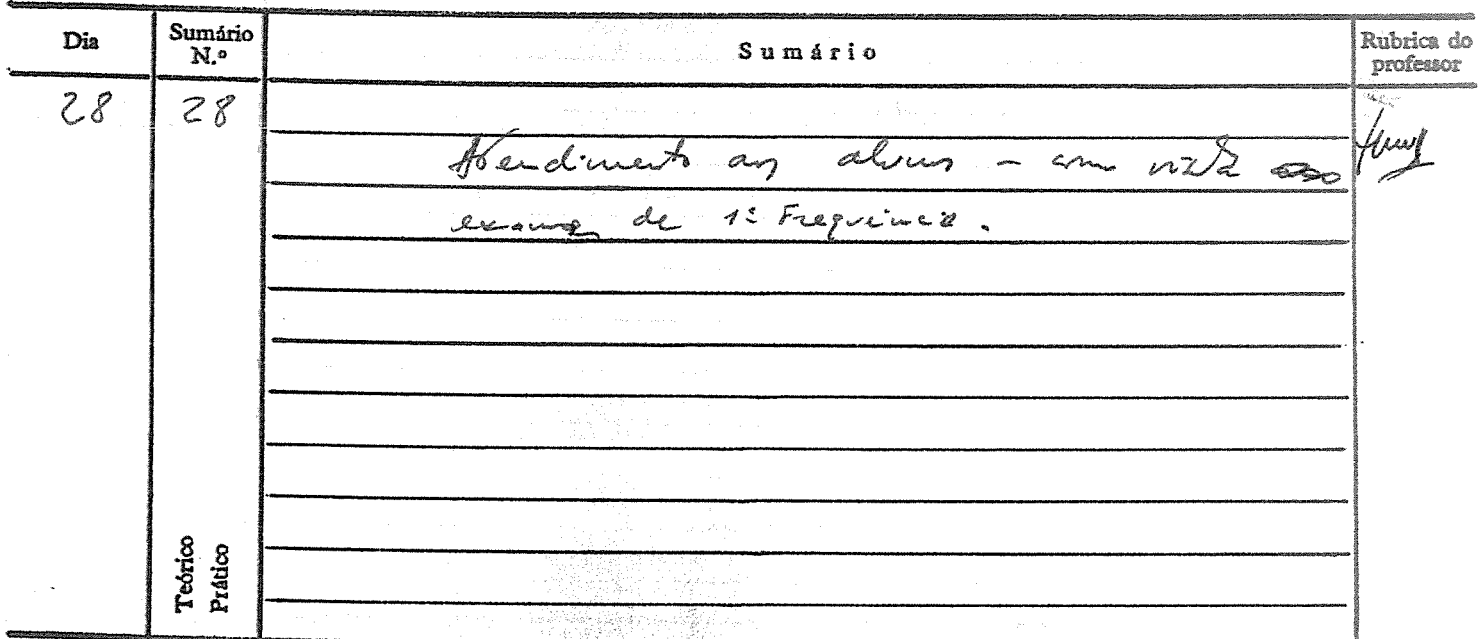 Dia Sumário N.º Sumário Rubrica do professor
28 28
Atendimento aos alunos - com vista
exames de 1ª Frequência.
Teórico
Prático